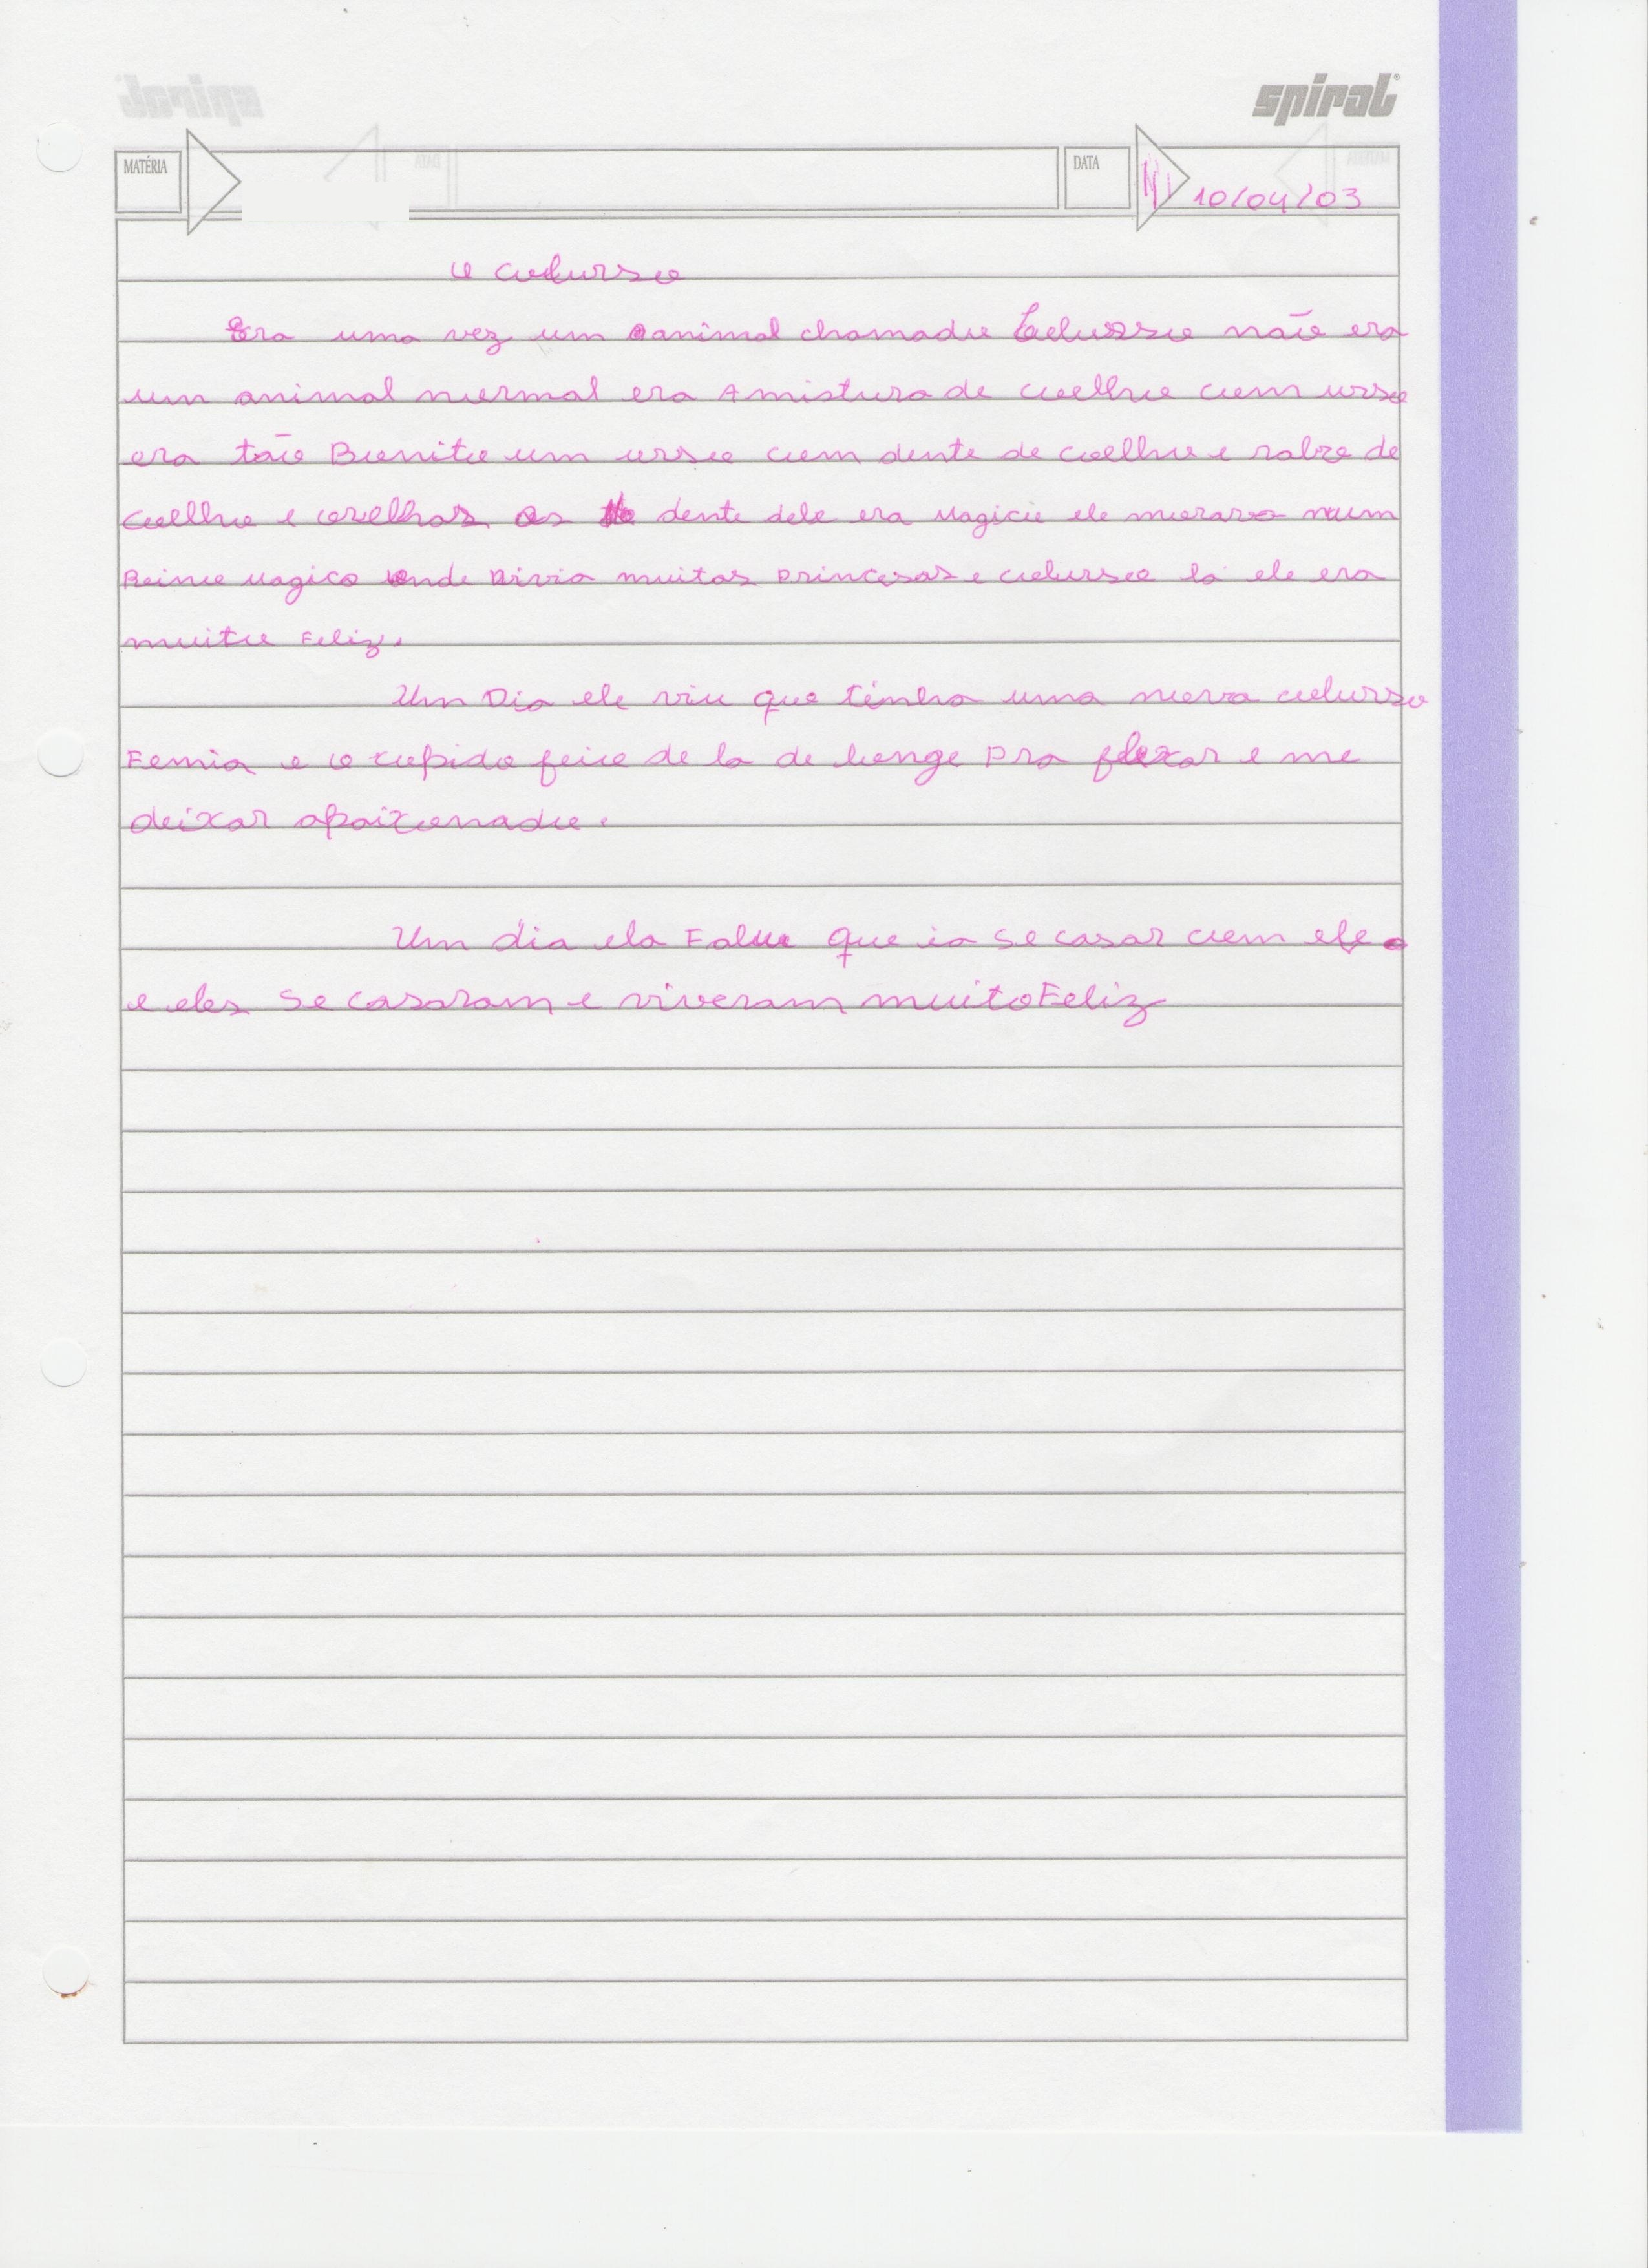 spiral
MATÉRIA
DATA
10/04/03
O coelurso
Era uma vez um animal chamado Coelurso não era
um animal normal era A mistura de coelho com urso
era tão Bonito um urso com dente de coelho e rabo de
coelho e orelhas os dente dele era magico ele morava num
Reino magico onde vivia muitas princesas e coelurso la ele era
muito Feliz.
Um Dia ele viu que tinha uma nova coelurso
Femia e o cupido feio de la de longe pra flexar e me
deixar apaixonado.
Um dia ela Falou que ia se casar com ele
e eles se casaram e viveram muito Feliz